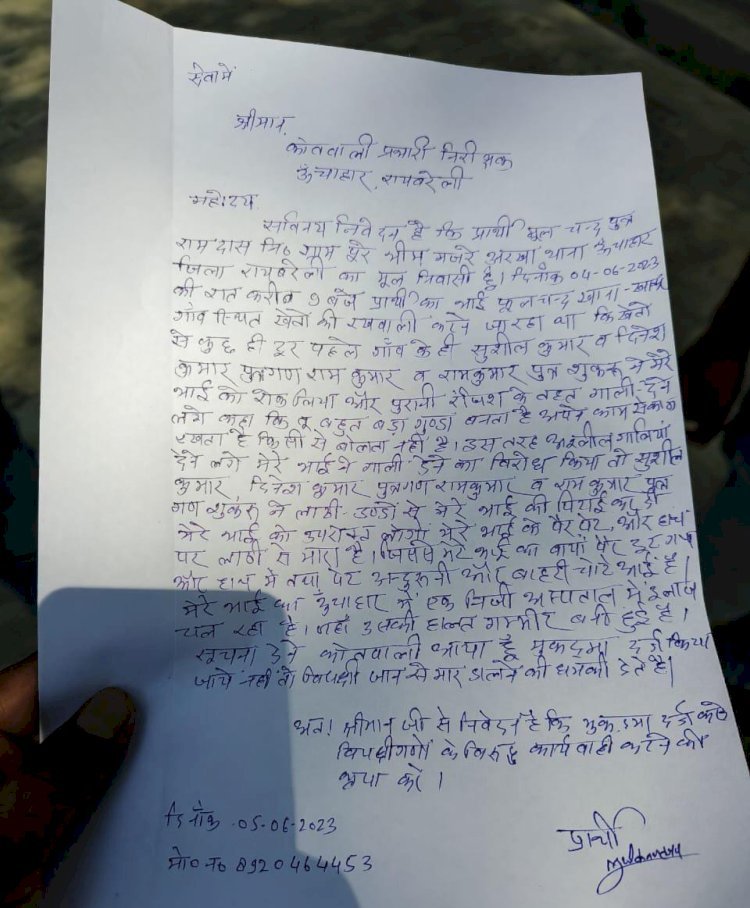 सेवा में
श्रीमान,
कोतवाली प्रभारी निरीक्षक
ऊंचाहार, रायबरेली
महोदय,
सविनय निवेदन है कि प्रार्थी मूल चन्द्र पुत्र
राम दास नि० ग्राम भीम मजरे अरखा थाना ऊँचाहार
जिला रायबरेली का मूल निवासी हूँ। दिनाँक 04-06-2023
की रात करीब 9 बजे प्रार्थी का भाई फूलचन्द्र खाना-खाकर
गाँव स्थित खेतों की रखवाली करने जा रहा था कि खेतों
से कुछ ही दूर पहले गाँव के ही सुशील कुमार व दिनेश
कुमार पुत्रगण राम कुमार व रामकुमार पुत्र शुकरू ने मेरे
भाई को रोक लिया और पुरानी रंजिश के तहत गाली देने
लगे कहा कि तू बहुत बड़ा गुण्डा बनता है अपने काम से काम
रखता है किसी से बोलता नहीं है। इस तरह अश्लील गालियां
देने लगे मेरे भाई ने गाली देने का विरोध किया तो सुशील
कुमार, दिनेश कुमार पुत्रगण रामकुमार व राम कुमार पुत्र
गण शुकरू ने लाठी-डण्डो से मेरे भाई की पिटाई कर दी
मेरे भाई को उपरोक्त लोगो मेरे भाई के पैर पेट, और हाथ
पर लाठी से मारा है। जिससे मेरे भाई का बायां पैर टूट गया
और हाथ में तथा पेट अन्दुरूनी और बाहरी चोटे आई है।
मेरे भाई का ऊँचाहार में एक निजी अस्पताल में इलाज
चल रहा है। जहाँ उसकी हालत गम्भीर बनी हुई है।
सूचना देने कोतवाली आया हूँ मुकदमा दर्ज किया
जाये नही तो विपक्षी जान से मार डालने की धमकी देते है।
अतः श्रीमान जी से निवेदन है कि मुकदमा दर्ज करके
विपक्षीगणों के विरुद्ध कार्यवाही करने की
कृपा करे।
दिनाँक 05-06-2023
मो० न० 8920464453
प्रार्थी